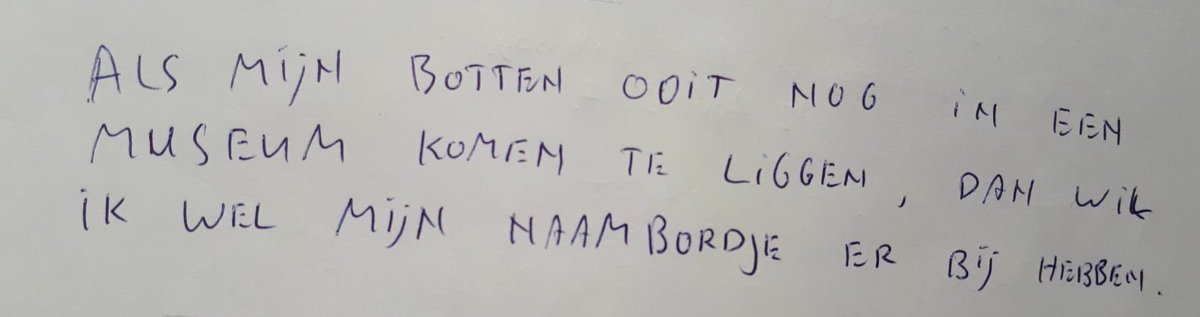 ALS MIJN BOTTEN OOIT NOG IN EEN
MUSEUM KOMEN TE LIGGEN, DAN WIL
IK WEL MIJN NAAMBORDJE ER BIJ HEBBEN.